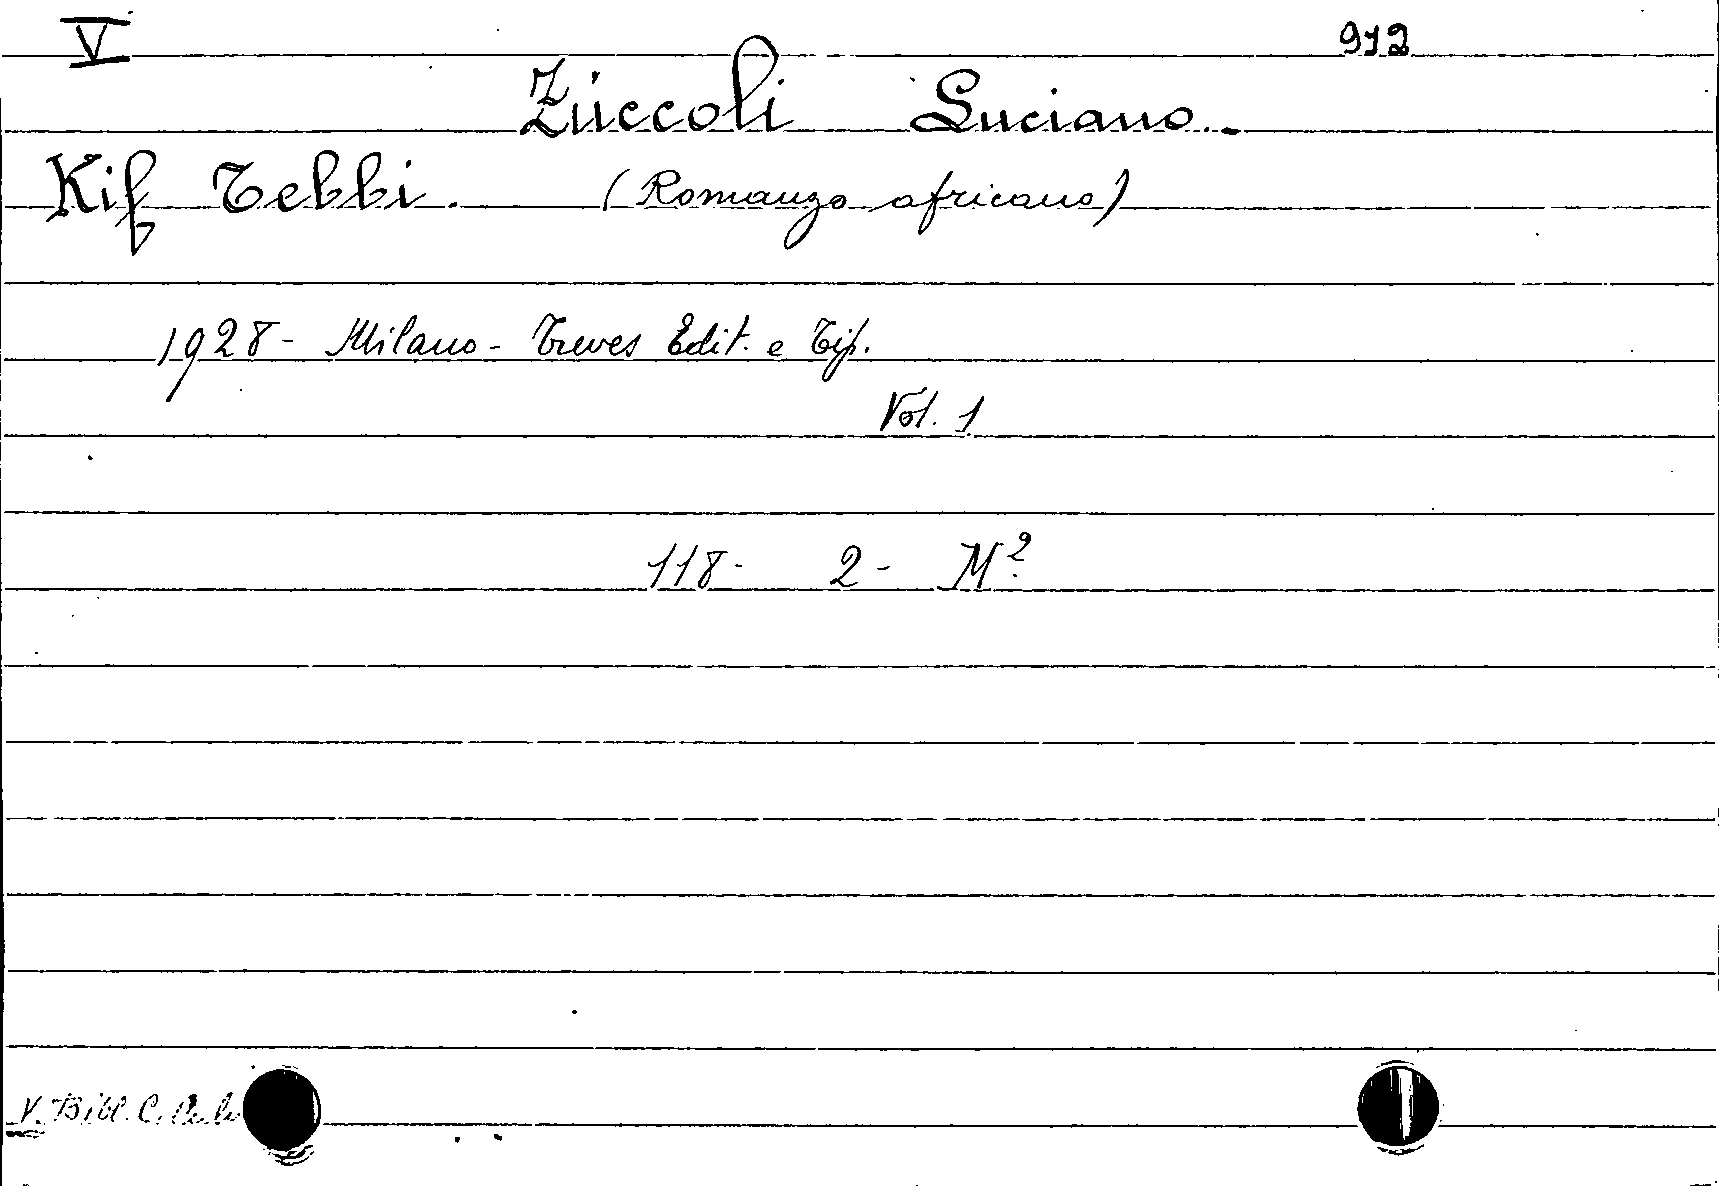 V 972
Züccoli Luciano.
Kif Tebbi. (Romanzo africano)
1928 - Milano - Treves Edit. e Tip.
Vol. 1
118 - 2 - M²
V. Bibl. C.